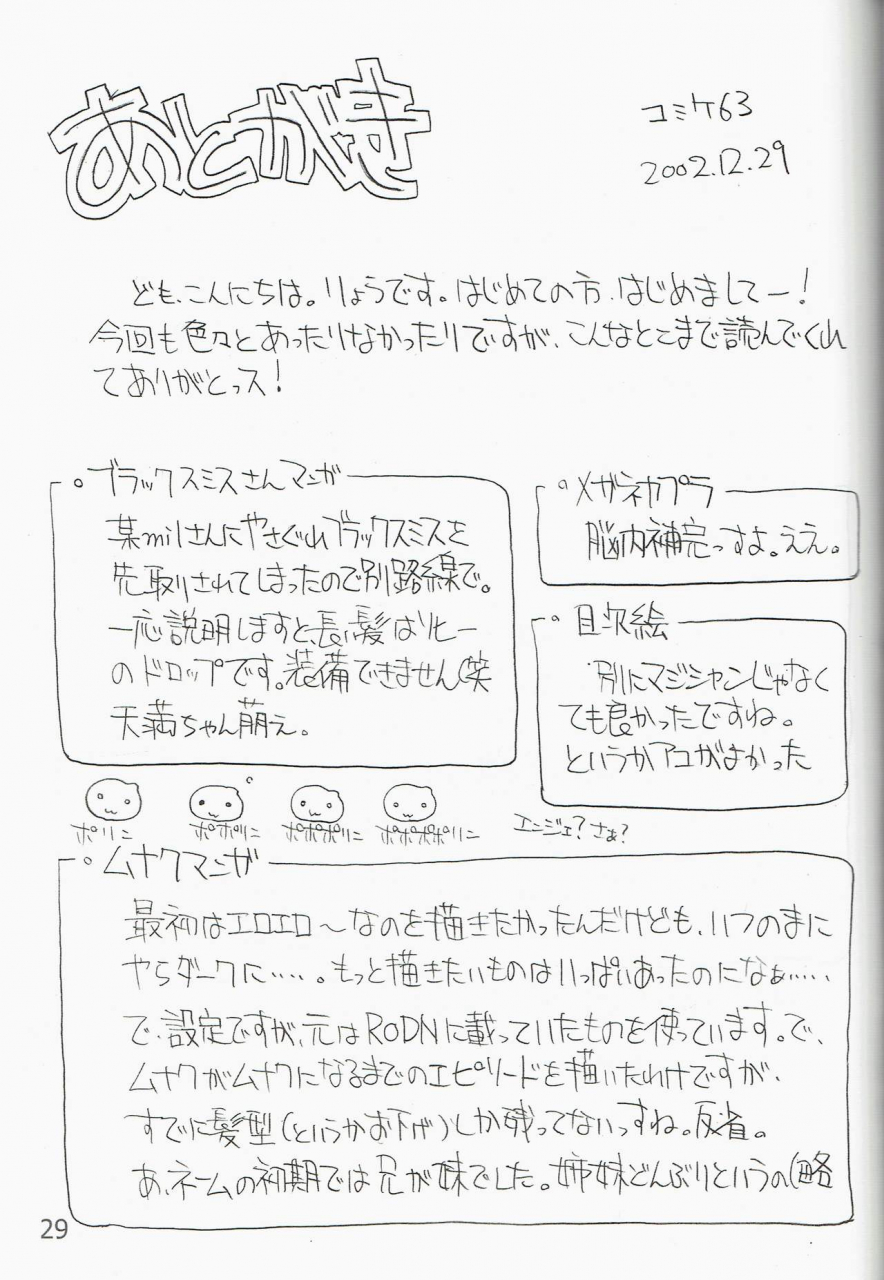 あとがき
コミケ63
2002.12.29
ども、こんにちは。りょうです。はじめての方、はじめましてー!
今回も色々とあったりなかったりですが、こんなとこまで読んでくれ
てありがとっス!
。ブラックスミスさんマンガ
某milさんにやさぐれブラックスミスを
先取りされてしまったので別路線で。
一応説明しますと、長い髪はソヒー
のドロップです。装備できません(笑
天満ちゃん萌え。
。メガネカプラ
脳内補完っすよ。ええ。
。目次絵
別にマジシャンじゃなく
ても良かったですね。
というかアコがよかった
ポリン
ポポリン
ポポポリン
ポポポポリン
エンジェ?さぁ?
。ムナクマンガ
最初はエロエロ〜なのを描きたかったんだけども、いつのまに
やらダークに‥‥。もっと描きたいものはいっぱいあったのになぁ‥‥
で、設定ですが、元はRODNに載っていたものを使っています。で、
ムナクがムナクになるまでのエピソードを描いたわけですが、
すでに髪型(というかお下げ)しか残ってないっすね。反省。
あ、ネームの初期では兄が妹でした。姉妹どんぶりというの(略
29